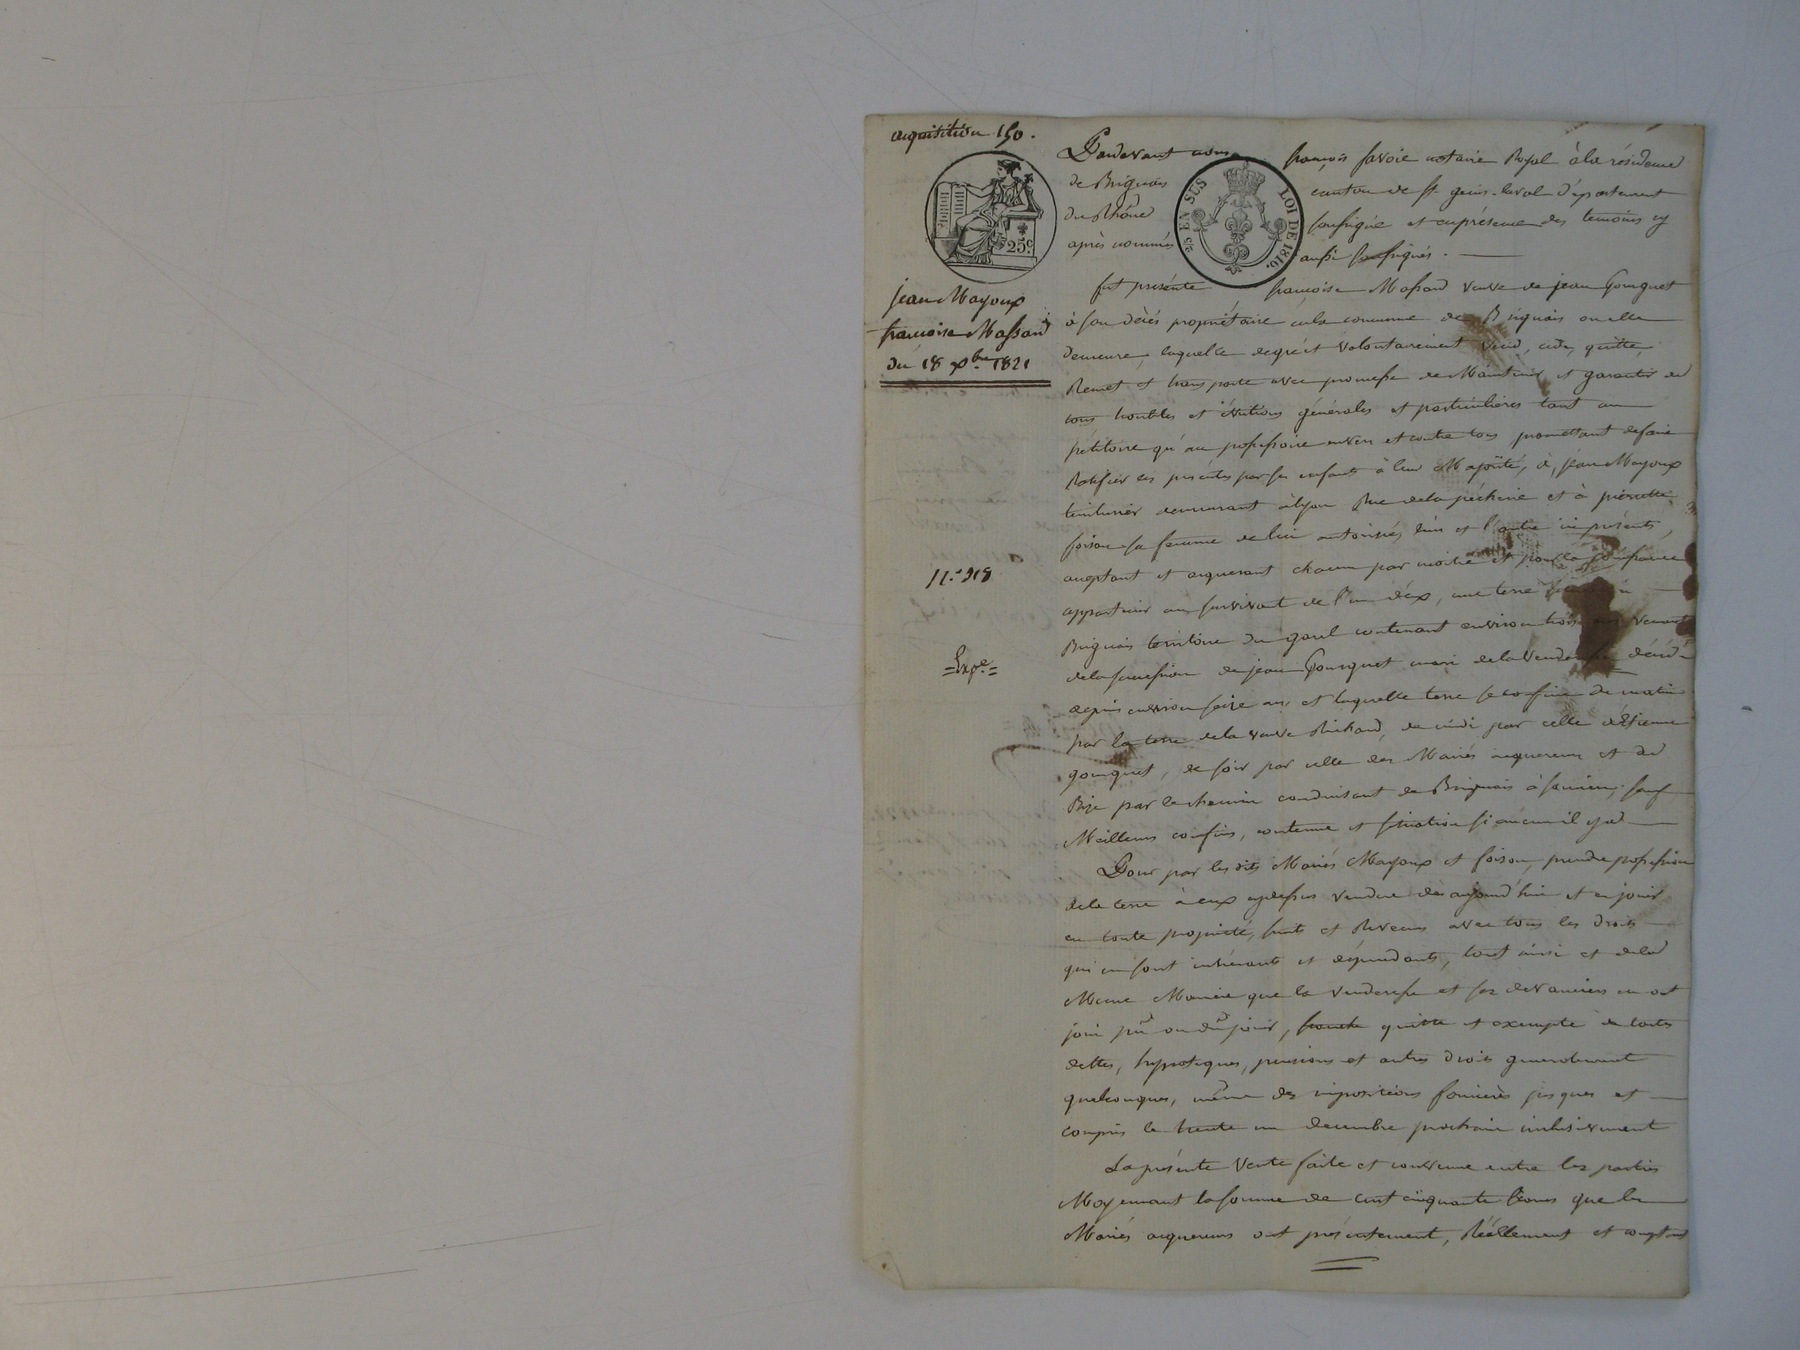 acquisition 150.
25c.
jean Mayoux
françoise Massard
du 18 xbre 1821
N.° 918
=Expe.=
Pardevant nous françois savoie notaire Royal à la résidence
de Brignais canton de St genis-laval département
du Rhône soussigné et enprésence des temoins cy
après nommés aussi soussignés.
EN SUS
LOI DE 1816.
fut présente françoise Massard veuve de jean Gourguet
à son décés propriétaire enla commune de Brignais ou elle
demeure, laquelle degré et volontairement vend, cède, quitte,
Remet et transporte avec promesse de Maintenir et garantir de
tous troubles et évictions générales et particulières tant au
pétitoire qu'au possessoire envers et contre tous promettant defaire
Ratifier ces présentes par ses enfants à leur Majorité, à, jean Mayoux
teinturier demeurant àlyon Rue dela pécherie et à pierrette
foison sa femme de lui autorisée, l'un et l'autre ici présents,
acceptant et acquerant chacun par moitié et pour la jouissance
appartenir au survivant de l'un d'eux, une terre
Brignais territoire du garel contenant environ trois venant
dela succession de jean Gourguet mari dela Venderesse décédé
depuis environ seize ans, et laquelle terre se confine de matin
par la terre dela veuve Richard, de midi par celle d'Etienne
gourguet, de soir par celle des Mariés acquereurs et de
Bise par le chemin conduisant de Brignais à soucieu, sauf
Meilleurs confins, contenue et situation si aucun il y a
Pour par les dits Mariés Mayoux et foison, prendre possession
dela terre à eux cydessus vendue dès aujourd'hui et en jouir
en toute propriété, fruits et Revenus avec tous les droits
qui en sont inhérants et dépendants, tout ainsi et dela
Meme Manière que la venderesse et ses devanciers en ont
joui pû ou dû jouir, franche quitte et exempte de toutes
dettes, hypoteques, pensions et autres droits généralement
quelconques, même des impositions foncières jusques et
compris le trente un decembre prochain inclusivement
La présente Vente faite et convenue entre les parties
Moyennant la somme de cent cinquante francs que les
Mariés acquereurs ont présentement, Réellement et comptant